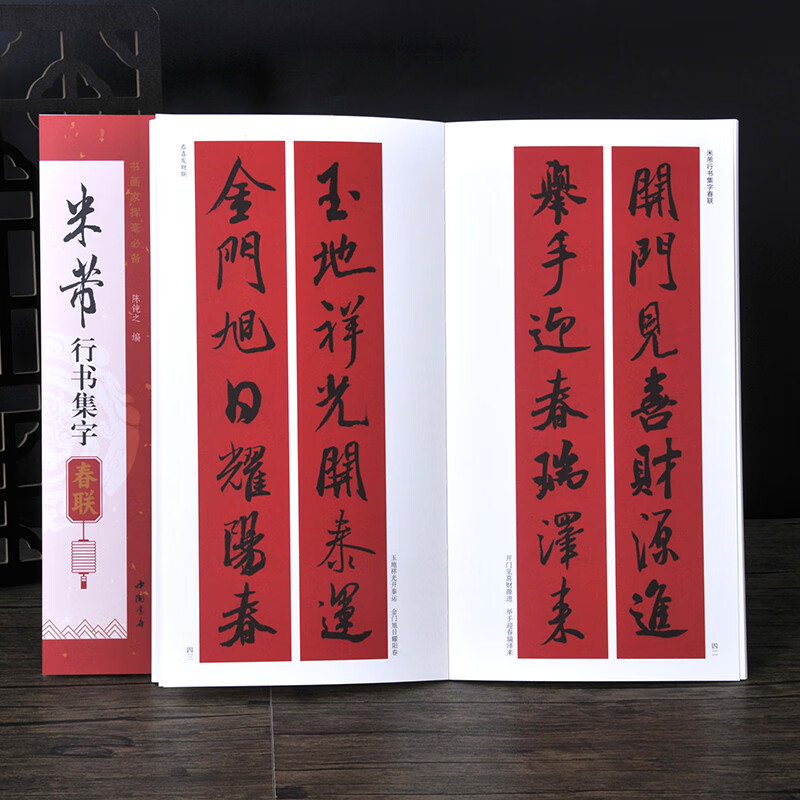 书画家挥毫必备
米芾
行书集字
春联
陈钝之 编
中国书店
米芾行书集字春联
開門見喜財源進
舉手迎春瑞澤来
开门见喜财源进 举手迎春瑞泽来
四二
玉地祥光開泰運
金門旭日耀陽春
玉地祥光开泰运 金门旭日耀阳春
恭喜发财联
四三